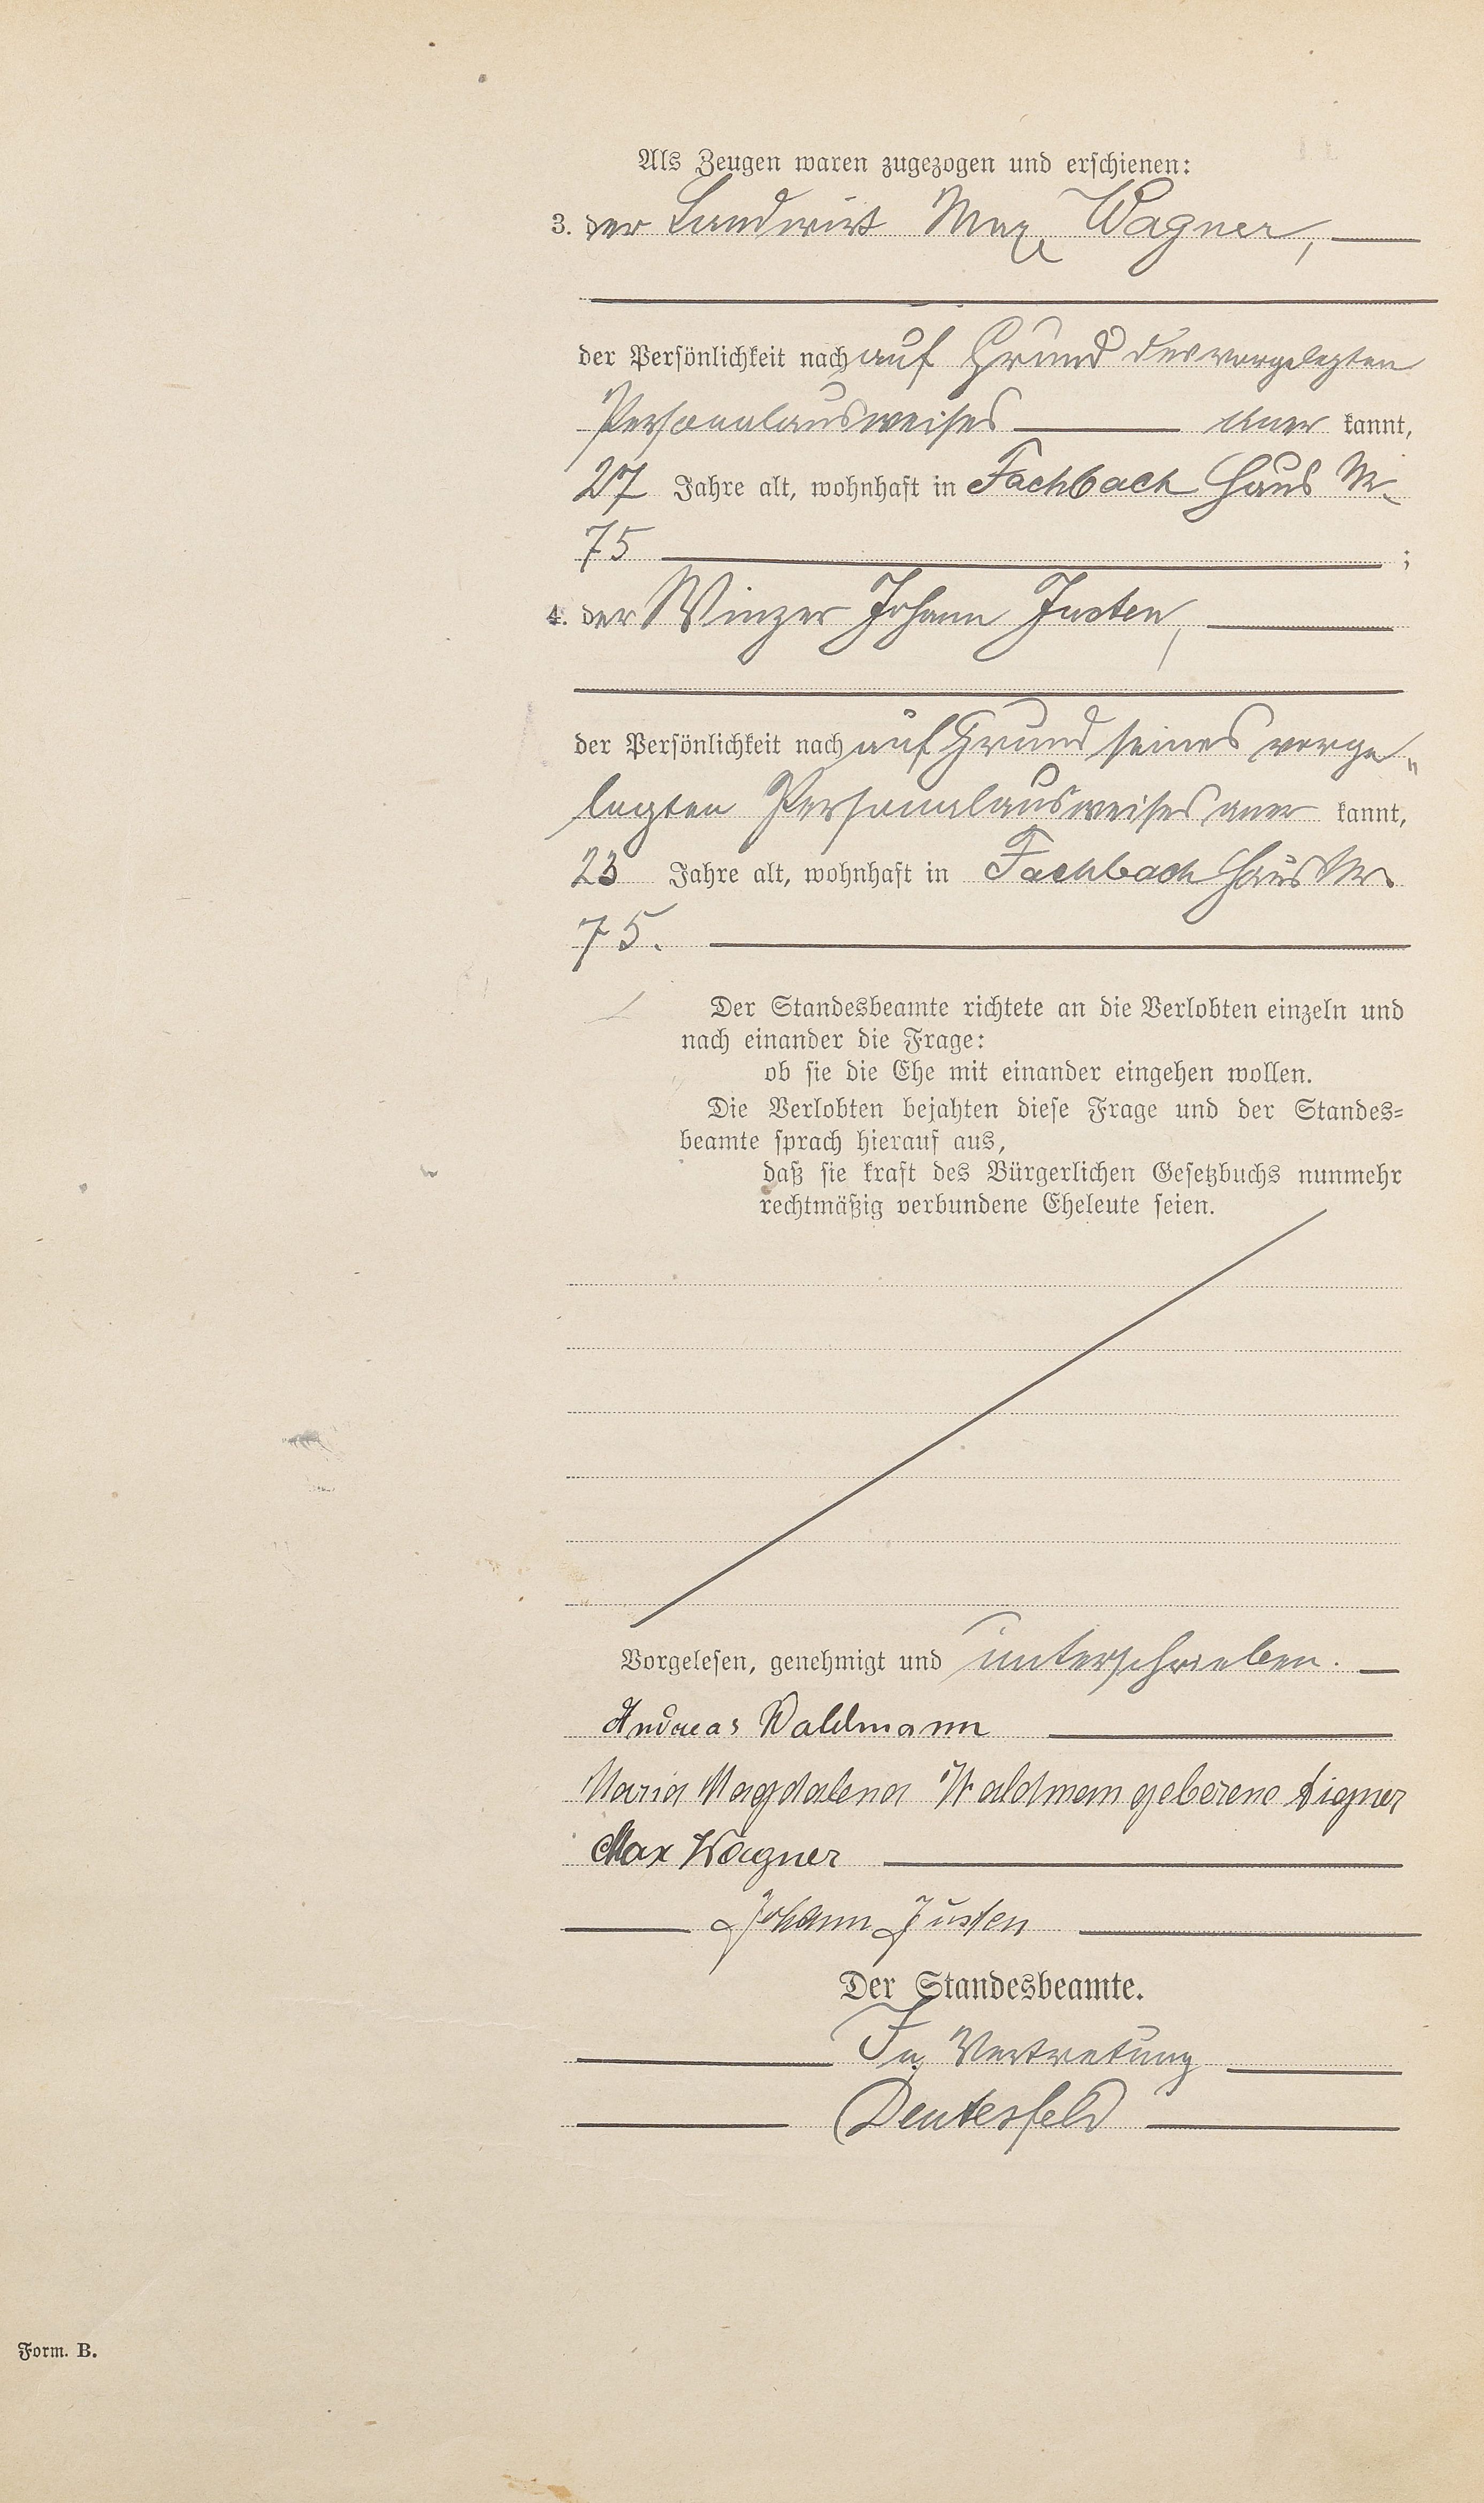 Als Zeugen waren zugezogen und erschienen:
3. der Landwirt Max Wagner,
der Persönlichkeit nach auf Grund des vorgelegten
Personalausweises aner kannt,
27 Jahre alt, wohnhaft in Fachbach Haus Nr.
75 ;
4. der Winzer Johann Justen,
der Persönlichkeit nach auf Grund seines vorge„
legten Personalausweises aner kannt,
23 Jahre alt, wohnhaft in Fachbach Haus Nr.
75.
Der Standesbeamte richtete an die Verlobten einzeln und
nach einander die Frage:
ob sie die Ehe mit einander eingehen wollen.
Die Verlobten bejahten diese Frage und der Standes=
beamte sprach hierauf aus,
daß sie kraft des Bürgerlichen Gesetzbuchs nunmehr
rechtmäßig verbundene Eheleute seien.
Vorgelesen, genehmigt und unterschrieben.
Andreas Waldmann
Maria Magdalena Waldmann geborene Aigner
Max Wagner
Johann Justen
Der Standesbeamte.
In Vertretung
Deutesfeld
Form. B.